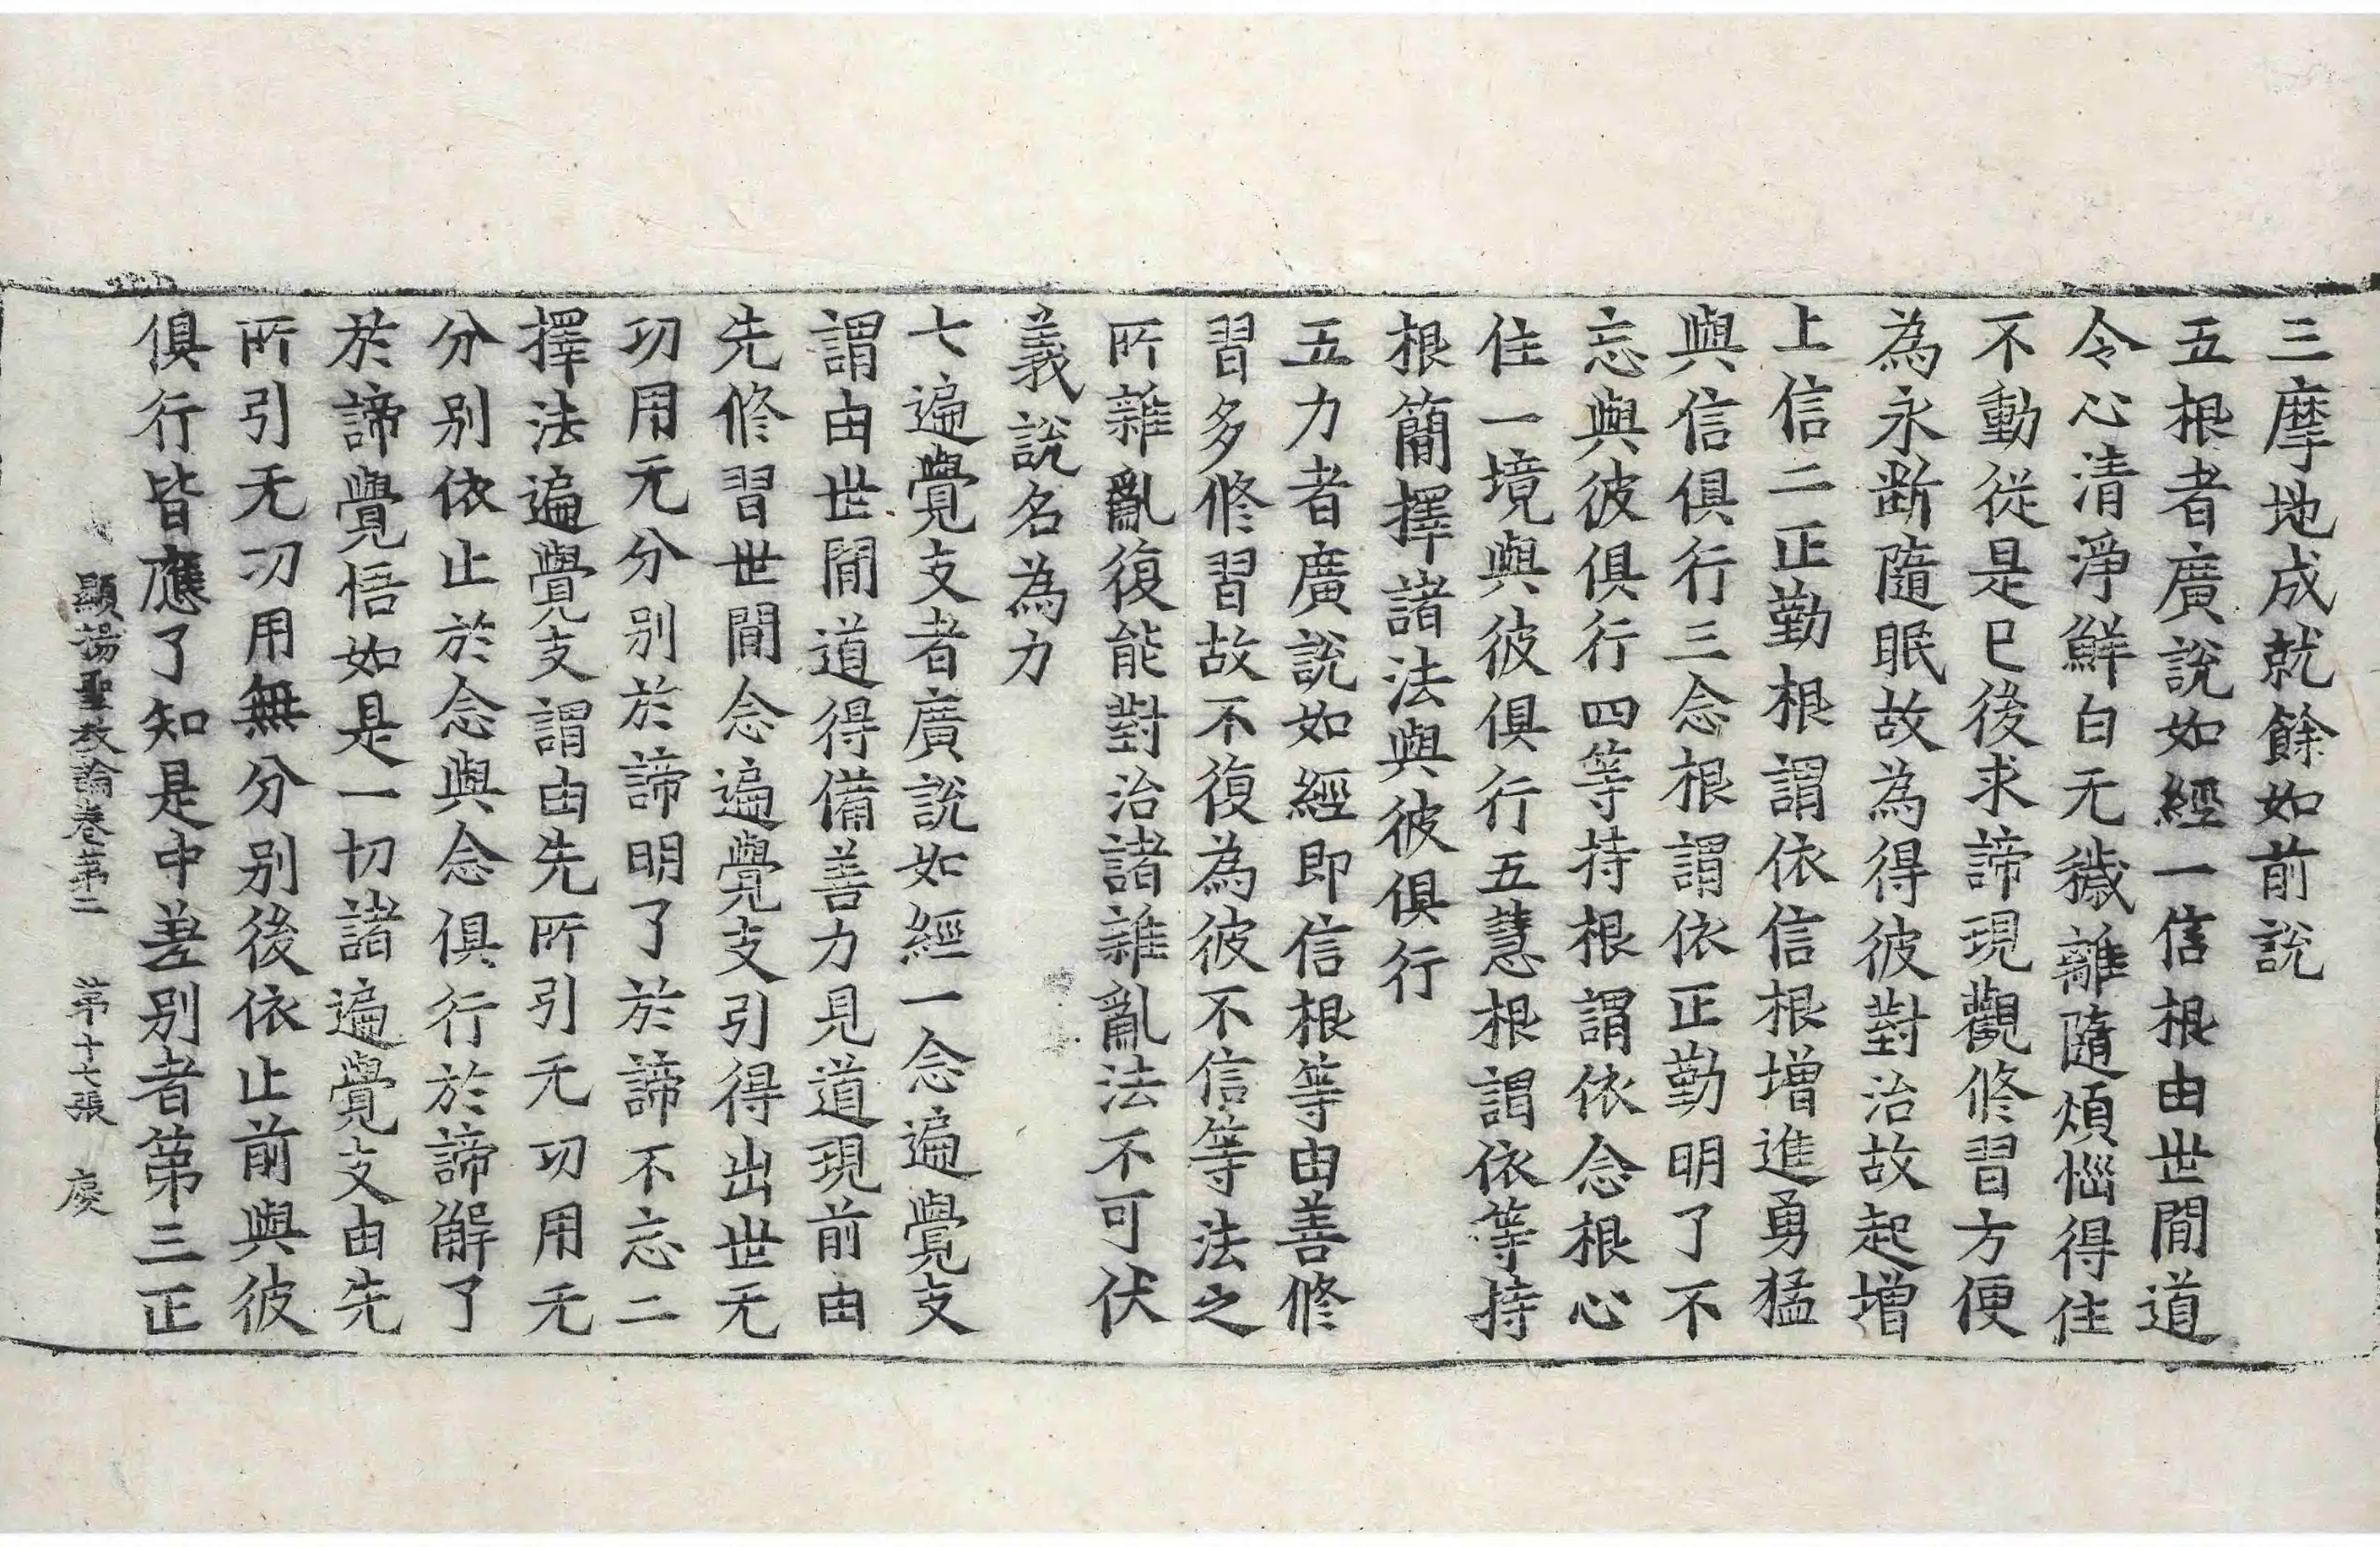 三摩地成就餘如前說
五根者廣說如經一信根由世間道
令心清淨鮮白无穢離隨煩惱得住
不動從是已後求諦現觀修習方便
為永斷隨眠故為得彼對治故起增
上信二正勤根謂依信根增進勇猛
與信俱行三念根謂依正勤明了不
忘與彼俱行四等持根謂依念根心
住一境與彼俱行五慧根謂依等持
根簡擇諸法與彼俱行
五力者廣說如經即信根等由善修
習多修習故不復為彼不信等法之
所雜亂復能對治諸雜亂法不可伏
義說名為力
七遍覺支者廣說如經一念遍覺支
謂由世間道得備善力見道現前由
先修習世間念遍覺支引得出世无
功用无分別於諦明了於諦不忘二
擇法遍覺支謂由先所引无功用无
分別依止於念與念俱行於諦解了
於諦覺悟如是一切諸遍覺支由先
所引无功用無分別後依止前與彼
俱行皆應了知是中差別者第三正
顯揚聖教論卷第二　第十七張　虞